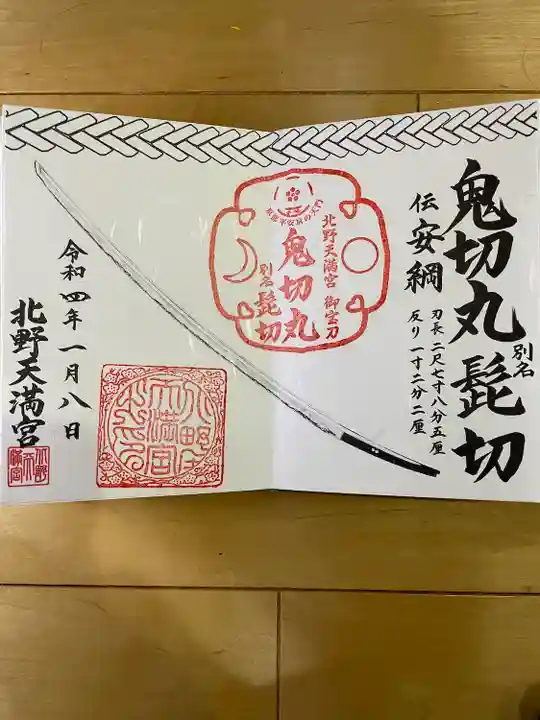 鬼切丸 別名 髭切
伝 安綱
刃長 二尺七寸八分五厘
反り 一寸二分二厘
北野天満宮 御宝刀
鬼切丸
別名 髭切
令和四年一月八日
北野天満宮